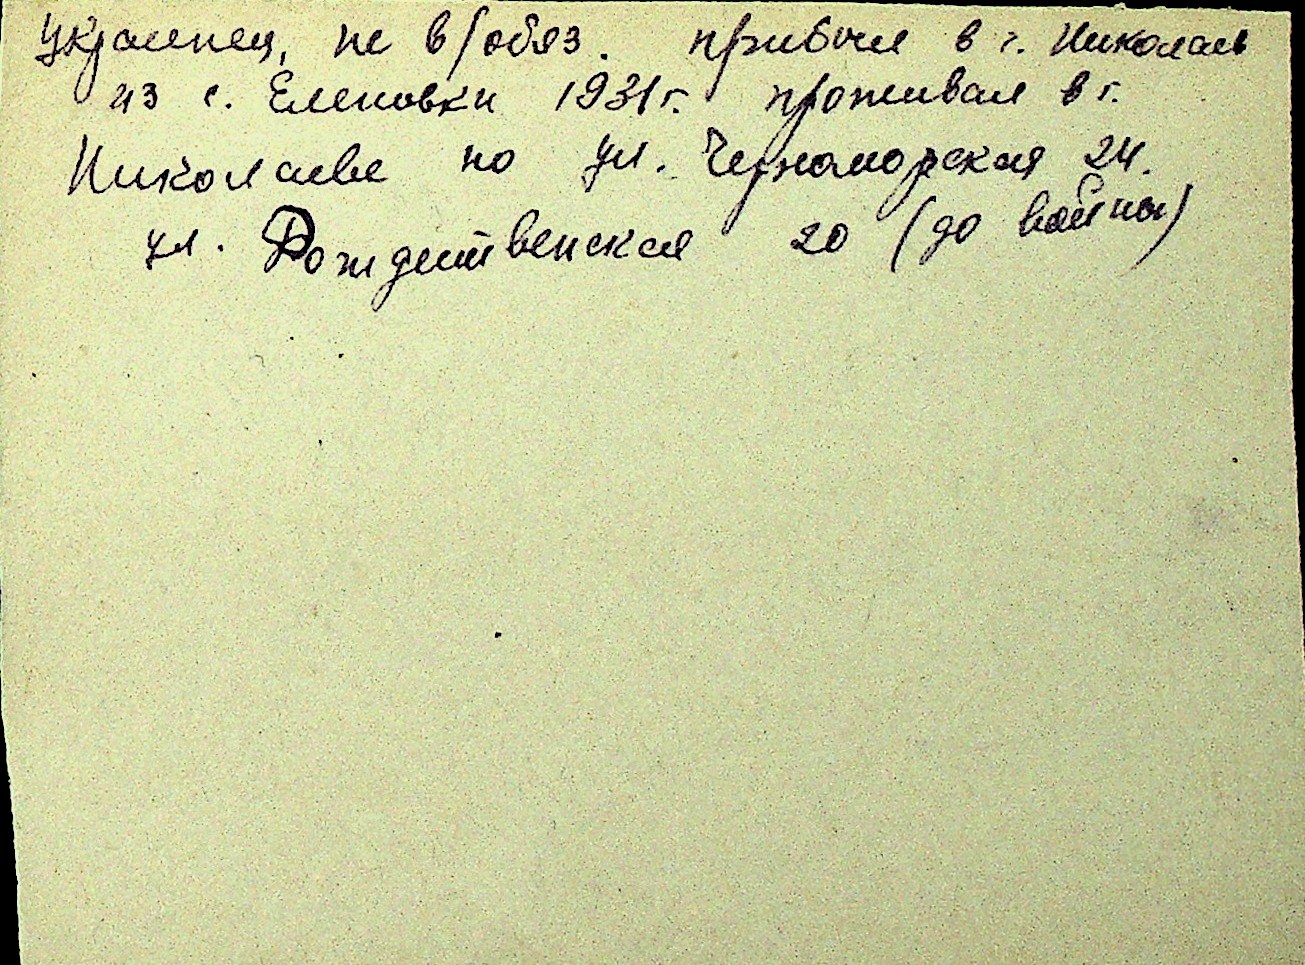 украинец, не в/обяз. прибыл в г. Николаев
из с. Еленовки 1931г. проживал в г.
Николаеве по ул. Черноморская 24.
ул. Рождественская 20 (до войны)